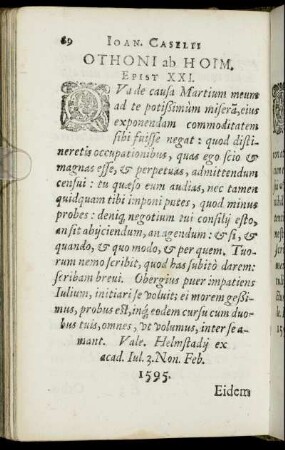 69 IOAN. CASELII
OTHONI ab HOIM.
EPIST XXI.
QVa de causa Martium meum
ad te potißimùm miserã, eius
exponendam commoditatem
sibi fuisse negat: quod disti-
neretis occupationibus, quas ego scio &
magnas esse, & perpetuas, admittendum
censui: tu quæso eum audias, nec tamen
quidquam tibi imponi putes, quod minus
probes: deniq, negotium tui consilij esto,
an sit abijciendum, an agendum: & si, &
quando, & quo modo, & per quem. Tuo-
rum nemo scribit, quod has subitò darem:
scribam brevi. Obergius puer impatiens
Iulium, initiari se voluit; ei morem geßi-
mus, probus est, inq, eodem cursu cum duo-
bus tuis, omnes, vt volumus, inter se a-
mant. Vale. Helmstadij ex
acad. Iul. 3. Non. Feb.
1595.
Eidem